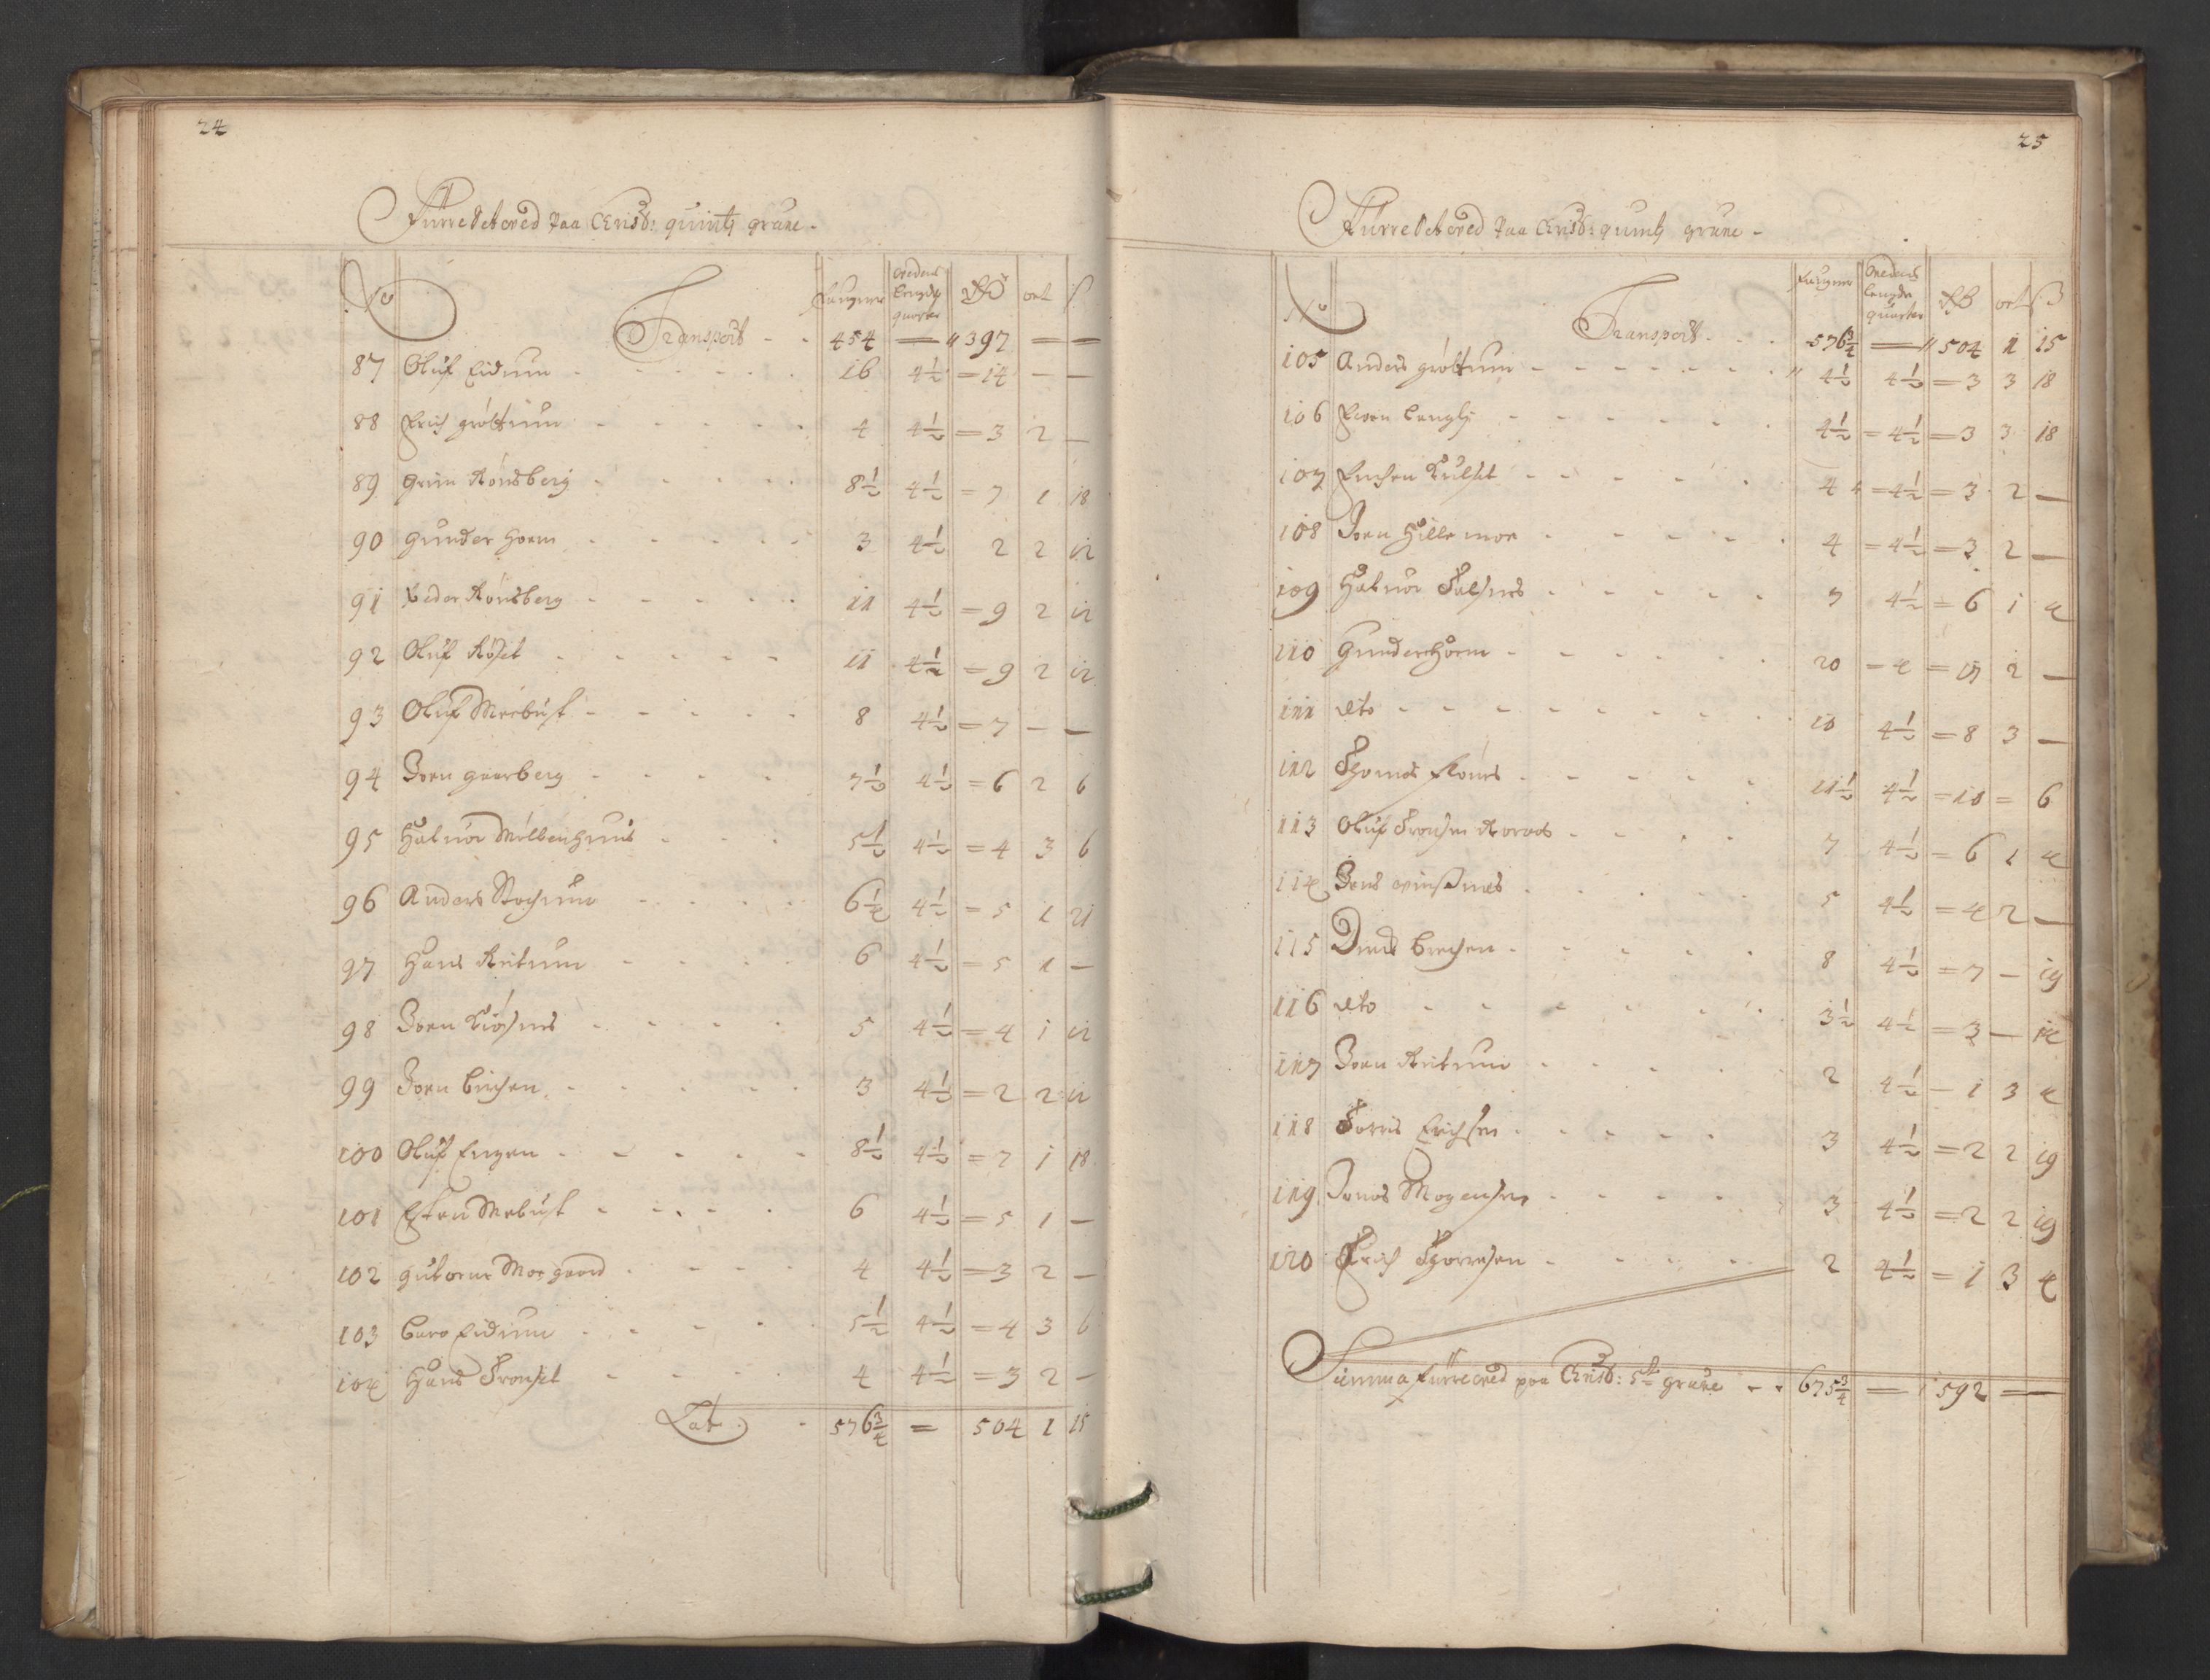 24
Furre Setteved Paa Christ: quinti grube -
No Faugner vedens lengde quarter Rdr ort ß
Transport - - 454 — " 397 — —
87 Oluf Eidum - 16 4½ = 14 — —
88 Erich grøttum - 4 4½ = 3 2 —
89 Grim Rønsberg - 8½ 4½ = 7 1 18
90 Gunder Horm - 3 4½ 2 2 12
91 Peder Rønsberg - 11 4½ = 9 2 12
92 Oluf Røset - 11 4½ = 9 2 12
93 Oluf Meebust - 8 4½ = 7 — —
94 Joen gaarberg - 7½ 4½ = 6 2 6
95 Halvor Møllenhuus - 5½ 4½ = 4 3 6
96 Anders Stochum - 6¼ 4½ = 5 1 21
97 Hans Reitum - 6 4½ = 5 1 —
98 Joen Kiøsnes - 5 4½ = 4 1 12
99 Joen birchen - 3 4½ = 2 2 12
100 Oluf Engen - 8½ 4½ = 7 1 18
101 Esten Mebust - 6 4½ = 5 1 —
102 Gutorm Moegaard - 4 4½ = 3 2 —
103 Baro Eidum - 5½ 4½ = 4 3 6
104 Hans Tronset - 4 4½ = 3 2 —
Lat: - 576¾ = 504 1 15
25
Furre Setteved Paa Christ: quinti grube -
No Faugner vedens lengde quarter Rdr ort ß
Transport - - 576¾ — " 504 1 15
105 Anders grøttum - " 4½ 4½ = 3 3 18
106 Even Lengly - 4½ = 4½ = 3 3 18
107 - 4 = 4½ = 3 2 —
108 Joen Hillemoe - 4 = 4½ = 3 2 —
109 Halvor Falsnes - 7 4½ = 6 1 4
110 Gunder Horm - 20 = 4 = 17 2 —
111 dto - 10 4½ = 8 3 —
112 Thomes Flønes - 11½ 4½ = 10 = 6
113 Oluf Tronsen Roraas - 7 4½ = 6 1 4
114 Jens - 5 4½ = 4 2 —
115 birchen - 8 4½ = 7 — 19
116 dto - 3½ 4½ = 3 — 14
117 Joen Reitum - 2 4½ — 1 3 4
118 Torris Erichsen - 3 4½ = 2 2 19
119 Jonas Mogensen - 3 4½ = 2 2 19
120 Erich Thoresen - 2 4½ = 1 3 4
Summa furre ved paa Christ: 5ti grube - - 675¾ — 592 = —